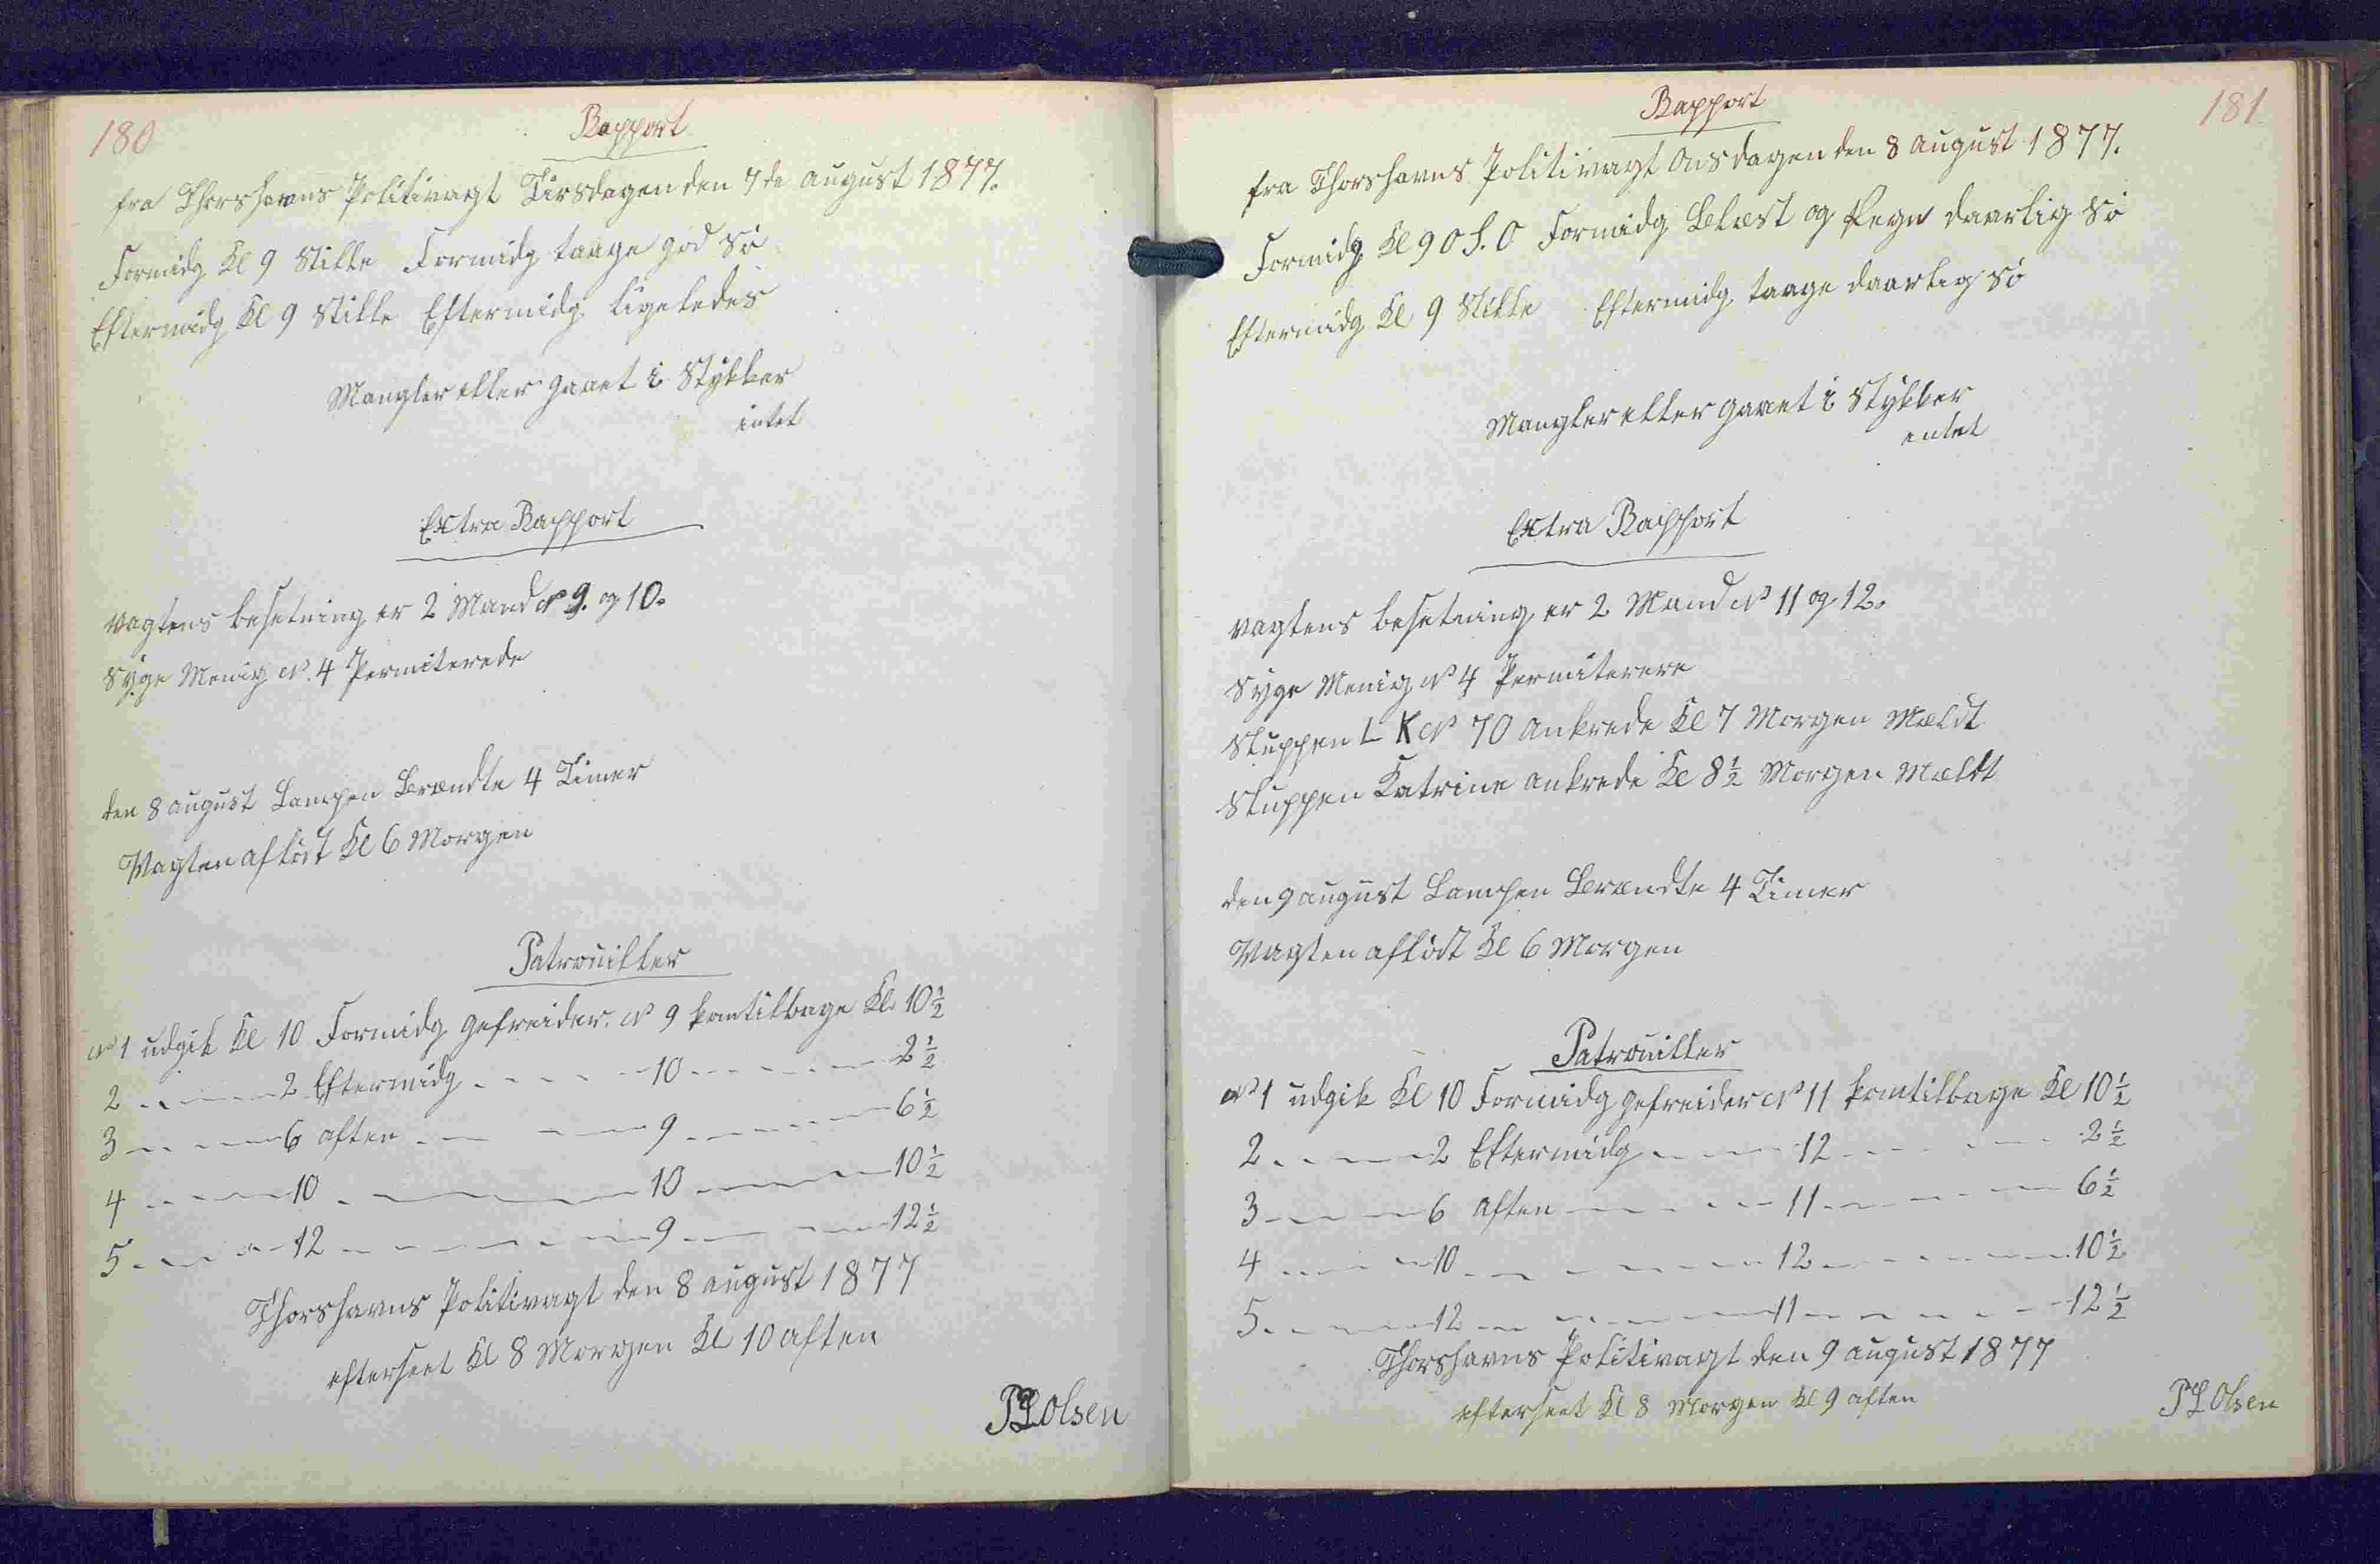 180
Rapport
fra Thorshavns Politivagt Tirsdagen den 7de august 1877.
Formidg Kl 9 Stille Formidg taage god Sö
Eftermidg Kl 9 Stille Eftermidg ligeledes
Mangler eller gaaet i Stykker
intet
Extra Rapport
vagtens besetning er 2 Mand No 9. og 10.
Syge Menig No. 4 Permiterede
den 8 august Lampen Brændte 4 Timer
Vagten aflöst Kl 6 Morgen
Patrouiller
No 1 udgik Kl 10 Formidg gefreider. No 9 komtilbage Kl. 10½
2 - - - - 2 Eftermidg - - - - - 10 - - - - - - 2½
3 - - - - 6 aften - - - - 9 - - - - - - 6½
4 - - - - 10 - - - - - - 10 - - - - - 10½
5 - - - - 12 - - - - - - 9 - - - - - 12½
Thorshavns Politivagt den 8 august 1877
efterseet Kl 8 Morgen Kl 10 aften
PLOlsen
181
Rapport
fra Thorshavns Politivagt Onsdagen den 8 august 1877.
Formidg Kl 9 O S. O Formidg Blæst og Regn daarlig Sö
Eftermidg Kl 9 Stille Eftermidg taage daarlig Sö
Mangler eller gaaet i Stykker
entet
Extra Rapport
vagtens besetning er 2 Mand No 11 og 12.
Syge Menig No 4 Permiterere
Sluppen L K No 70 ankrede Kl 7 Morgen Mældt
Sluppen Katrine ankrede Kl 8½ Morgen Mældt
den 9 august Lampen Brændte 4 Timer
Vagten aflöst Kl 6 Morgen
Patrouiller
No 1 udgik Kl 10 Formidg gefreider No 11 komtilbage Kl 10½
2 - - - - 2 Eftermidg - - - - 12 - - - - - 2½
3 - - - - 6 aften - - - - - 11 - - - - - 6½
4 - - - - 10 - - - - - - 12 - - - - - 10½
5 - - - - 12 - - - - - - 11 - - - - - 12½
Thorshavns Politivagt den 9 august 1877
efterseet Kl 8 Morgen Kl 9 aften
PLOlsen